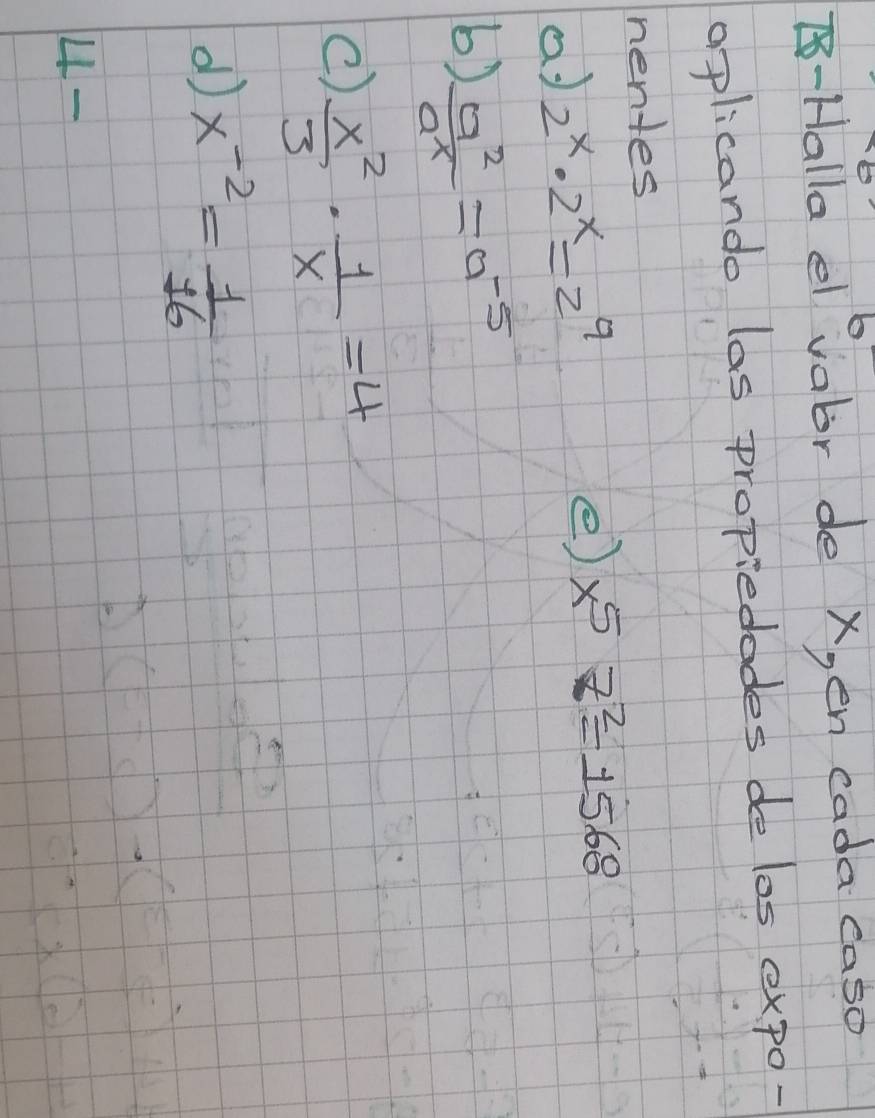 B-Halla el valor de x, en cada caso
aplicando las propiedades de los expo-
nentes
a) 2^x · 2^x = 2^9
b) a^2/a^x = a^-5
c) x^2/3 · 1/x = 4
d) x^-2 = 1/16
e) x^5 7^2 = 1568
4-